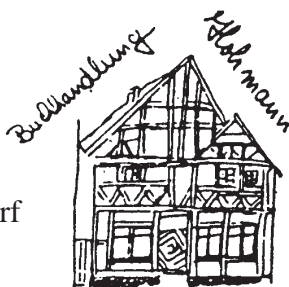 Buchhandlung
Hohmann
rf